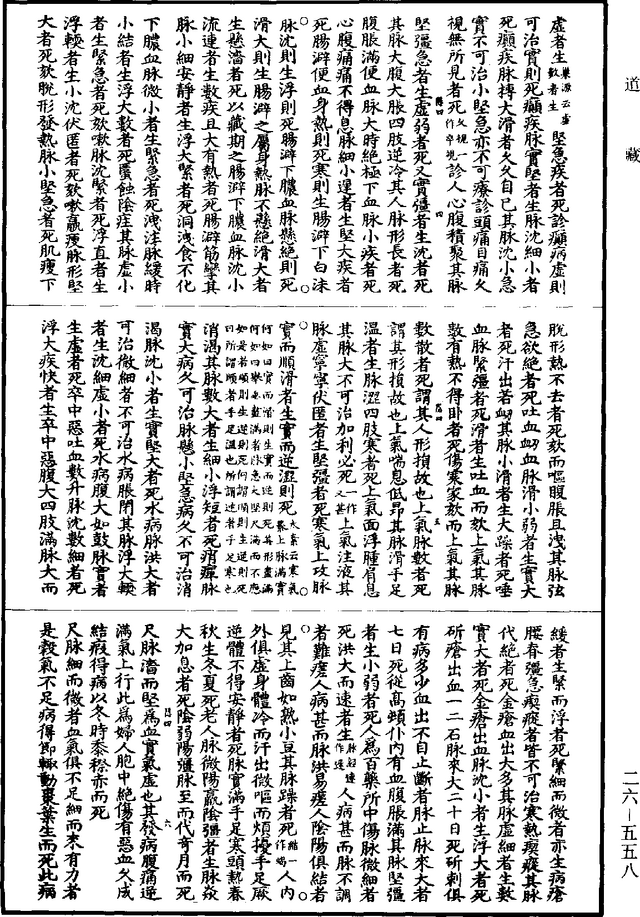 道藏
虛者生巢源云虛數者生堅急疾者死診癲病虛則
可治實則死癲疾脈實堅者生脈沈細小者
死癲疾脈搏大滑者久久自已其脈沈小急
實不可治小堅急亦不可療診頭痛目痛久
視無所見者死久視一作卒視診人心腹積聚其脈
堅彊急者生虛弱者死又實彊者生沈者死
其脈大腹大脹四肢逆冷其人脈形長者死
腹脹滿便血脈大時絕極下血脈小疾者死
心腹痛痛不得息脈細小遲者生堅大疾者
死腸澼便血身熱則死寒則生腸澼下白沫
脈沈則生浮則死腸澼下膿血脈懸絕則死
滑大則生腸澼之屬身熱脈不懸絕滑大者
生懸濇者死以藏期之腸澼下膿血脈沈小
流連者生數疾且大有熱者死腸澼筋攣其
脈小細安靜者生浮大緊者死洞洩食不化
下膿血脈微小者生緊急者死洩注脈緩時
小結者生浮大數者死䘌蝕陰疰其脈虛小
者生緊急者死欬嗽脈沈緊者死浮直者生
浮輭者生小沈伏匿者死欬嗽羸瘦脈形堅
大者死欬脫形發熱脈小堅急者死肌瘦下
脫形熱不去者死欬而嘔腹脹且洩其脈弦
急欲絕者死吐血衂血脈滑小弱者生實大
者死汗出若衂其脈小滑者生大躁者死唾
血脈緊彊者死滑者生吐血而欬上氣其脈
數有熱不得臥者死傷寒家欬而上氣其脈
數散者死謂其人形損故也上氣脈數者死
謂其形損故也上氣喘息低昂其脈滑手足
溫者生脈澀四肢寒者死上氣面浮腫肩息
其脈大不可治加利必死一作又甚上氣注液其
脈虛寧寧伏匿者生堅彊者死寒氣上攻脈
實而順滑者生實而逆澀則死太素云寒氣暴上脈滿實
何如曰實而滑則生實而逆則死矣其形盡滿
何如曰舉形盡滿者脈急大堅尺滿而不應
如是者順則生逆則死何謂順則生逆則死
曰所謂順者手足溫也所謂逆者手足寒也
消渴其脈數大者生細小浮短者死痟癉脈
實大病久可治脈懸小堅急病久不可治消
渴脈沈小者生實堅大者死水病脈洪大者
可治微細者不可治水病脹閉其脈浮大輭
者生沈細虛小者死水病腹大如鼓脈實者
生虛者死卒中惡吐血數升脈沈數細者死
浮大疾快者生卒中惡腹大四肢滿脈大而
緩者生緊而浮者死緊細而微者亦生病瘡
腰脊彊急瘈瘲者皆不可治寒熱瘈瘲其脈
代絕者死金瘡血出大多其脈虛細者生數
實大者死金瘡出血脈沈小者生浮大者死
斫瘡出血一二石脈來大二十日死斫刺俱
有病多少血出不自止斷者脈止脈來大者
七日死從高頓仆內有血腹脹滿其脈堅彊
者生小弱者死人為百藥所中傷脈微細者
死洪大而速者生作遲人病甚而脈不調
者難瘥人病甚而脈洪易瘥人陰陽俱結者
見其上齒如熟小豆其脈躁者死結一作竭人內
外俱虛身體冷而汗出微嘔而煩擾手足厥
逆體不得安靜者死脈實滿手足寒頭熱春
秋生冬夏死老人脈微陽羸陰彊者生脈焱
大加息者死陰弱陽彊脈至而代奇月而死
尺脈濇而堅為血實氣虛也其發病腹痛逆
滿氣上行此為婦人胞中絕傷有惡血久成
結瘕得病以冬時黍穄赤而死
尺脈細而微者血氣俱不足細而來有力者
是穀氣不足病得節輒動棗葉生而死此病
二六—五五八